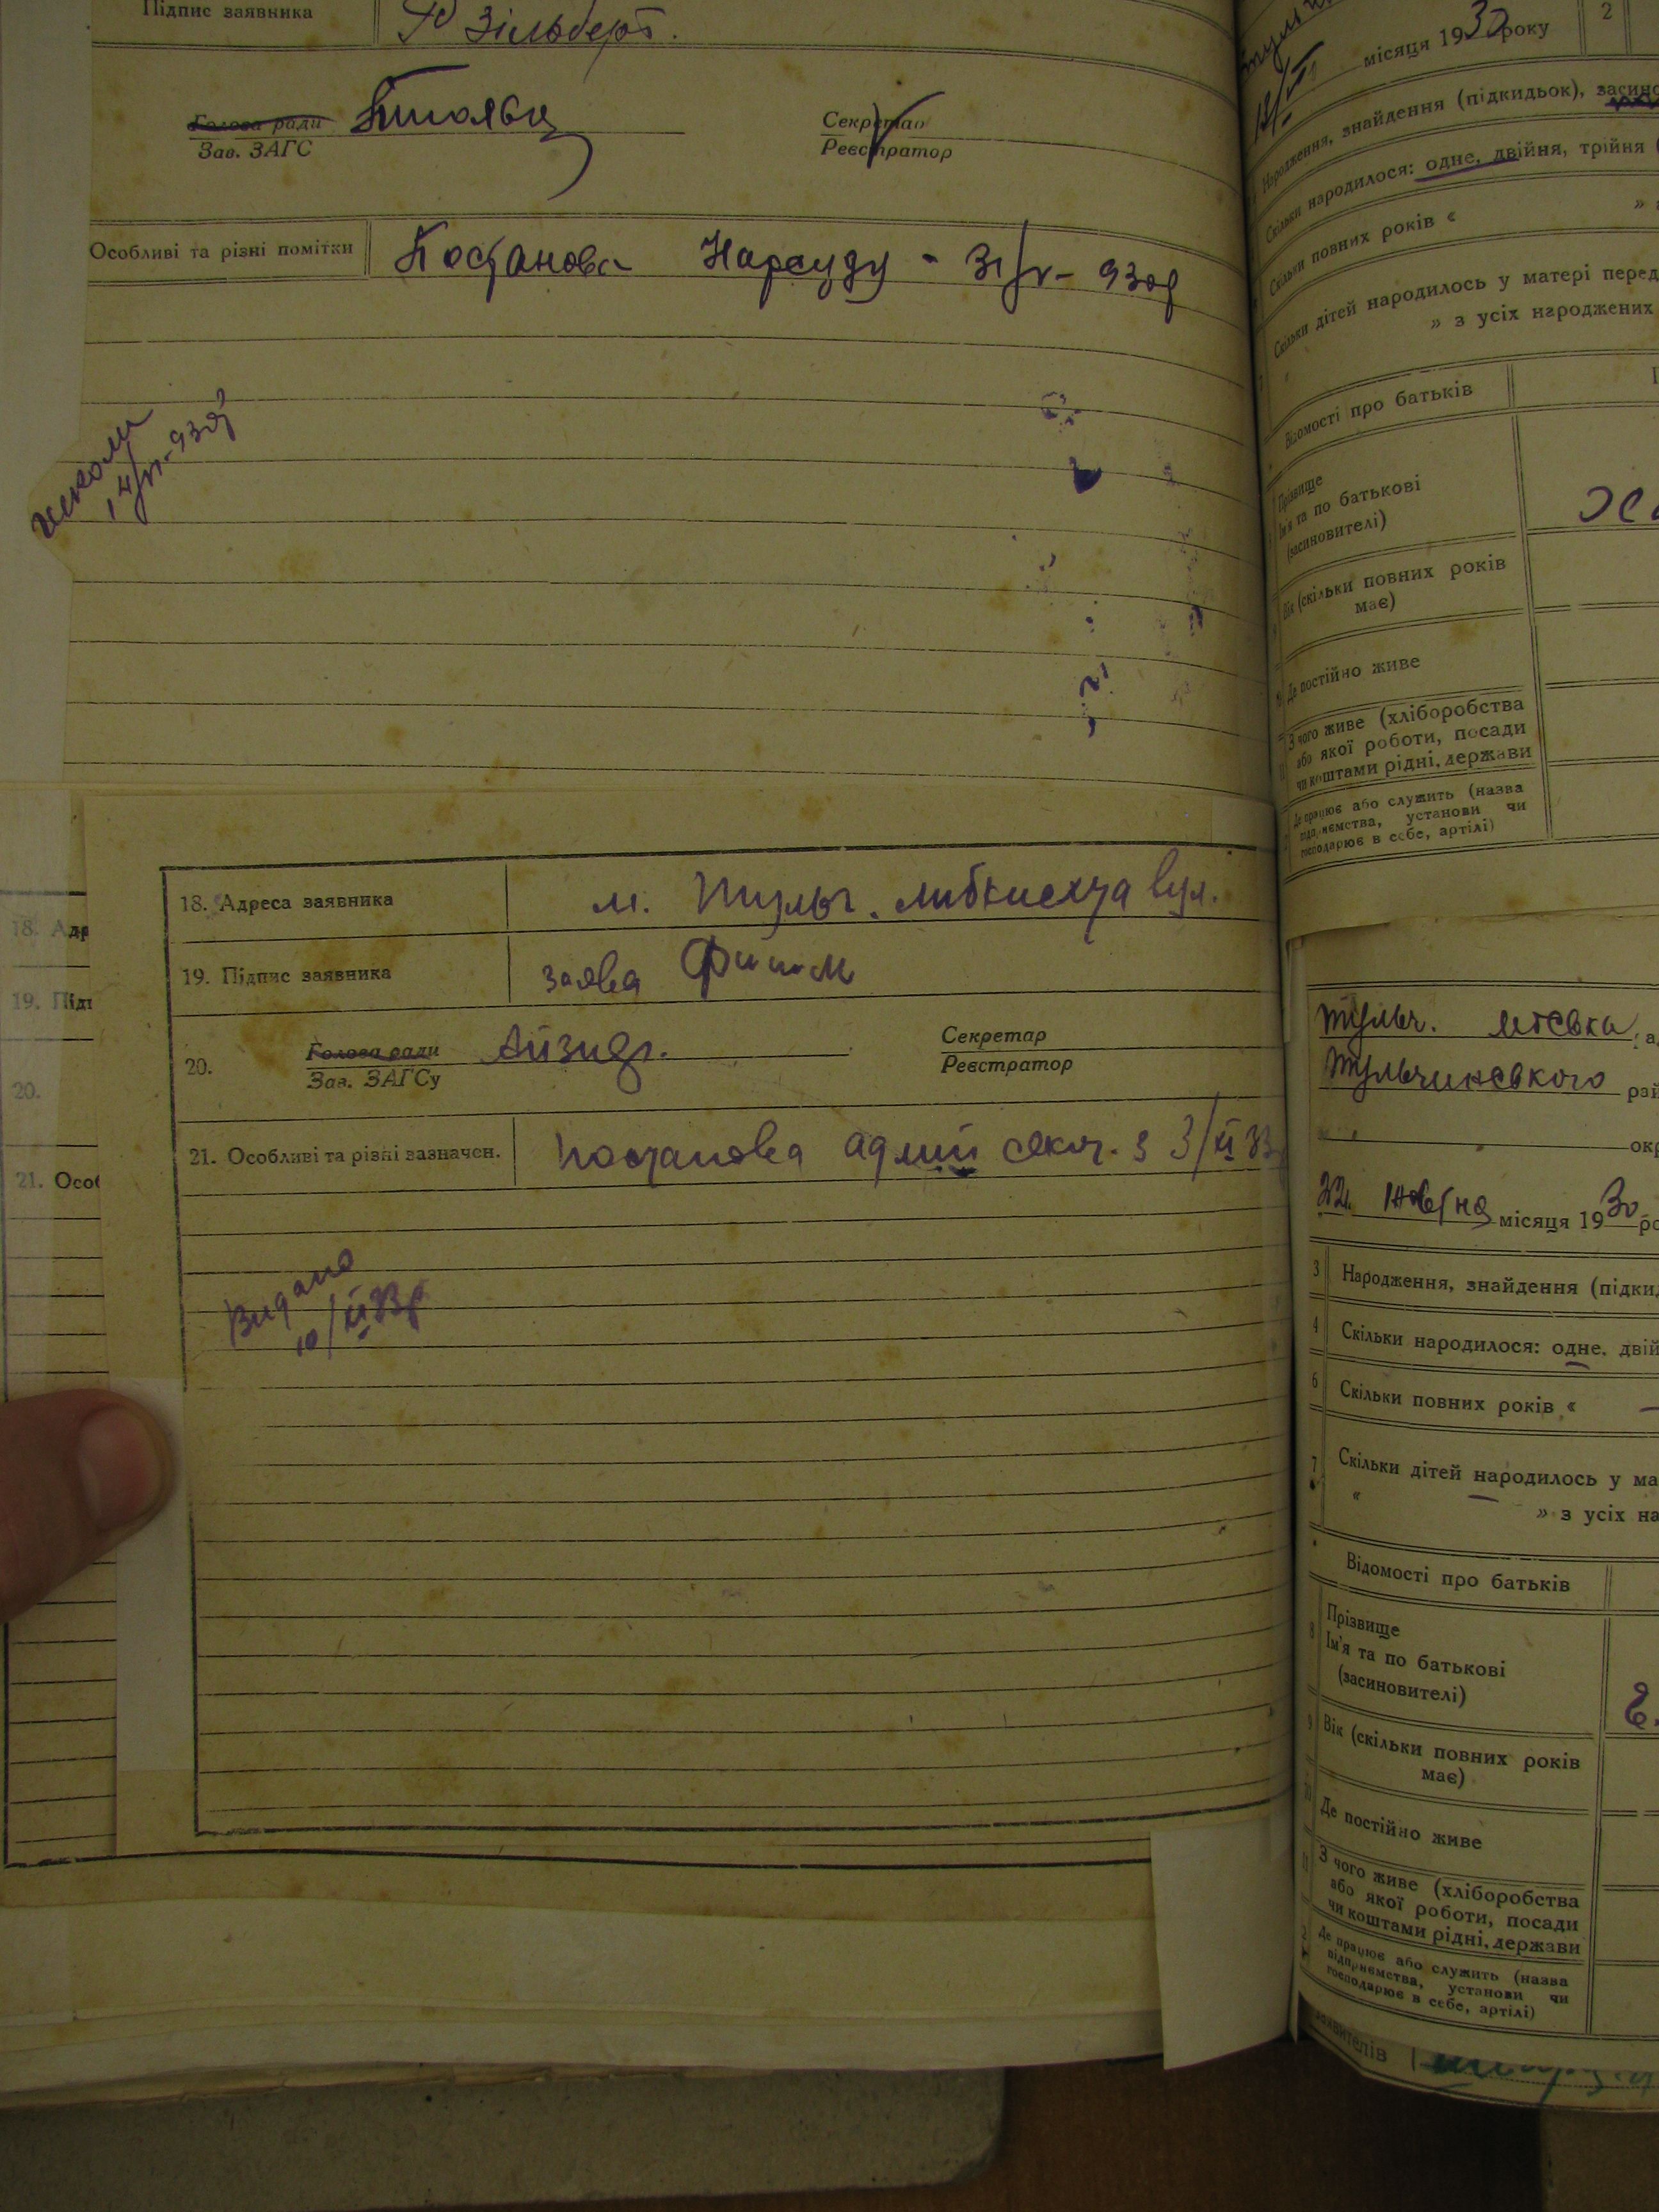 Підпис заявника Зільберт.
Голова ради
Зав. ЗАГС
Секретар
Реєстратор
Особливі та різні помітки Постанова Нарсуду - 31/V - 930р
14/VI-930р
18. Адреса заявника м. Тульч. Либкнехта вул.
19. Підпис заявника заява
20. Голова ради
Зав. ЗАГСу
Секретар
Реєстратор
21. Особливі та різні зазначен. постанова адмін секч. з 3/II
Видано
10/II
18. Адр
19. Підп
20.
21. Особ
місяця 1930 року
2
Народження, знайдення (підкидьок), засино
Скільки народилося: одне, двійня, трійня (
Скільки повних років «
»
Скільки дітей народилось у матері перед
» з усіх народжених
Відомості про батьків
Прізвище
Ім'я та по батькові
(засиновителі)
Вік (скільки повних років
має)
Де постійно живе
З чого живе (хліборобства
або якої роботи, посади
чи коштами рідні, держави
Де працює або служить (назва
підприємства, установи чи
господарює в себе, артілі)
Тульч.
Тульчинського рай
окр
22. Жовтня місяця 1930 ро
3 Народження, знайдення (підкид
4 Скільки народилося: одне, двій
6 Скільки повних років «
7 Скільки дітей народилось у ма
« » з усіх на
Відомості про батьків
8 Прізвище
Ім'я та по батькові
(засиновителі)
9 Вік (скільки повних років
має)
10 Де постійно живе
11 З чого живе (хліборобства
або якої роботи, посади
чи коштами рідні, держави
Де працює або служить (назва
підприємства, установи чи
господарює в себе, артілі)